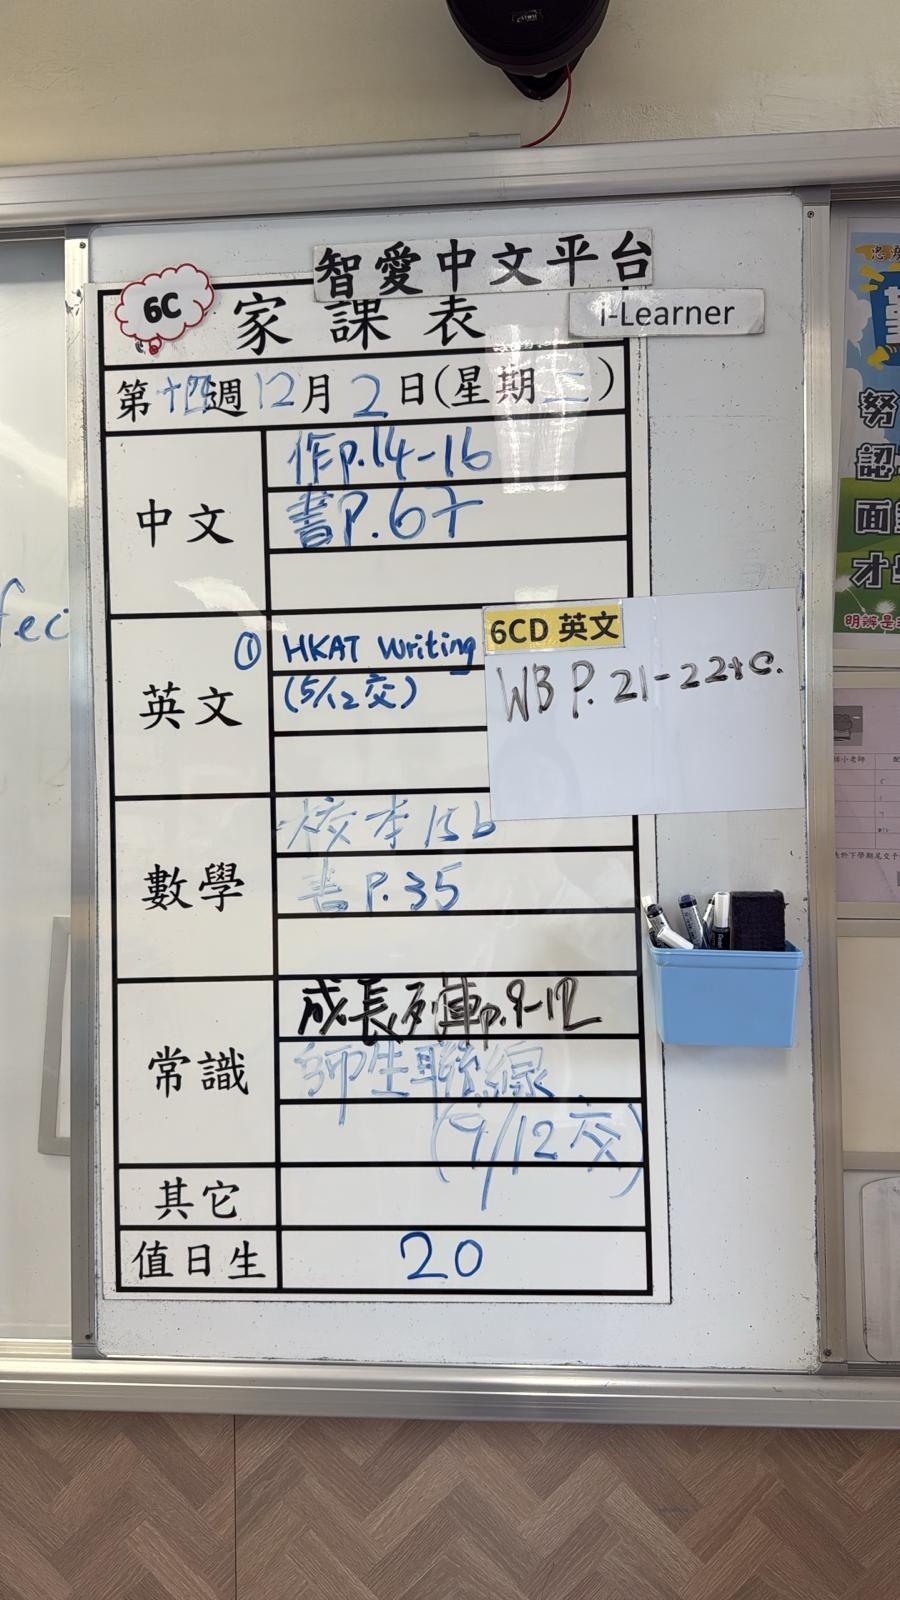 智愛中文平台
6C
家課表
i-Learner
第十四週12月2日(星期二)
中文
作p.14-16
書P.67
英文
① HKAT Writing
(5/12交)
6CD 英文
WB P. 21-22+c.
數學
校本15b
書P.35
常識
成長列車p.9-12
師生聯線
(9/12交)
其它
值日生
20
fec
努
認
面
才
明辨是